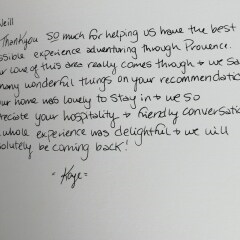 Neill
Thankyou so much for helping us have the best
ssible experience adventuring through Provence.
ur love of this area really comes through & we sa
many wonderful things on your recommendatio
ur home was lovely to stay in & we so
reciate your hospitality & friendly conversatio
whole experience was delightful & we will
solutely be coming back!
- Kaye -